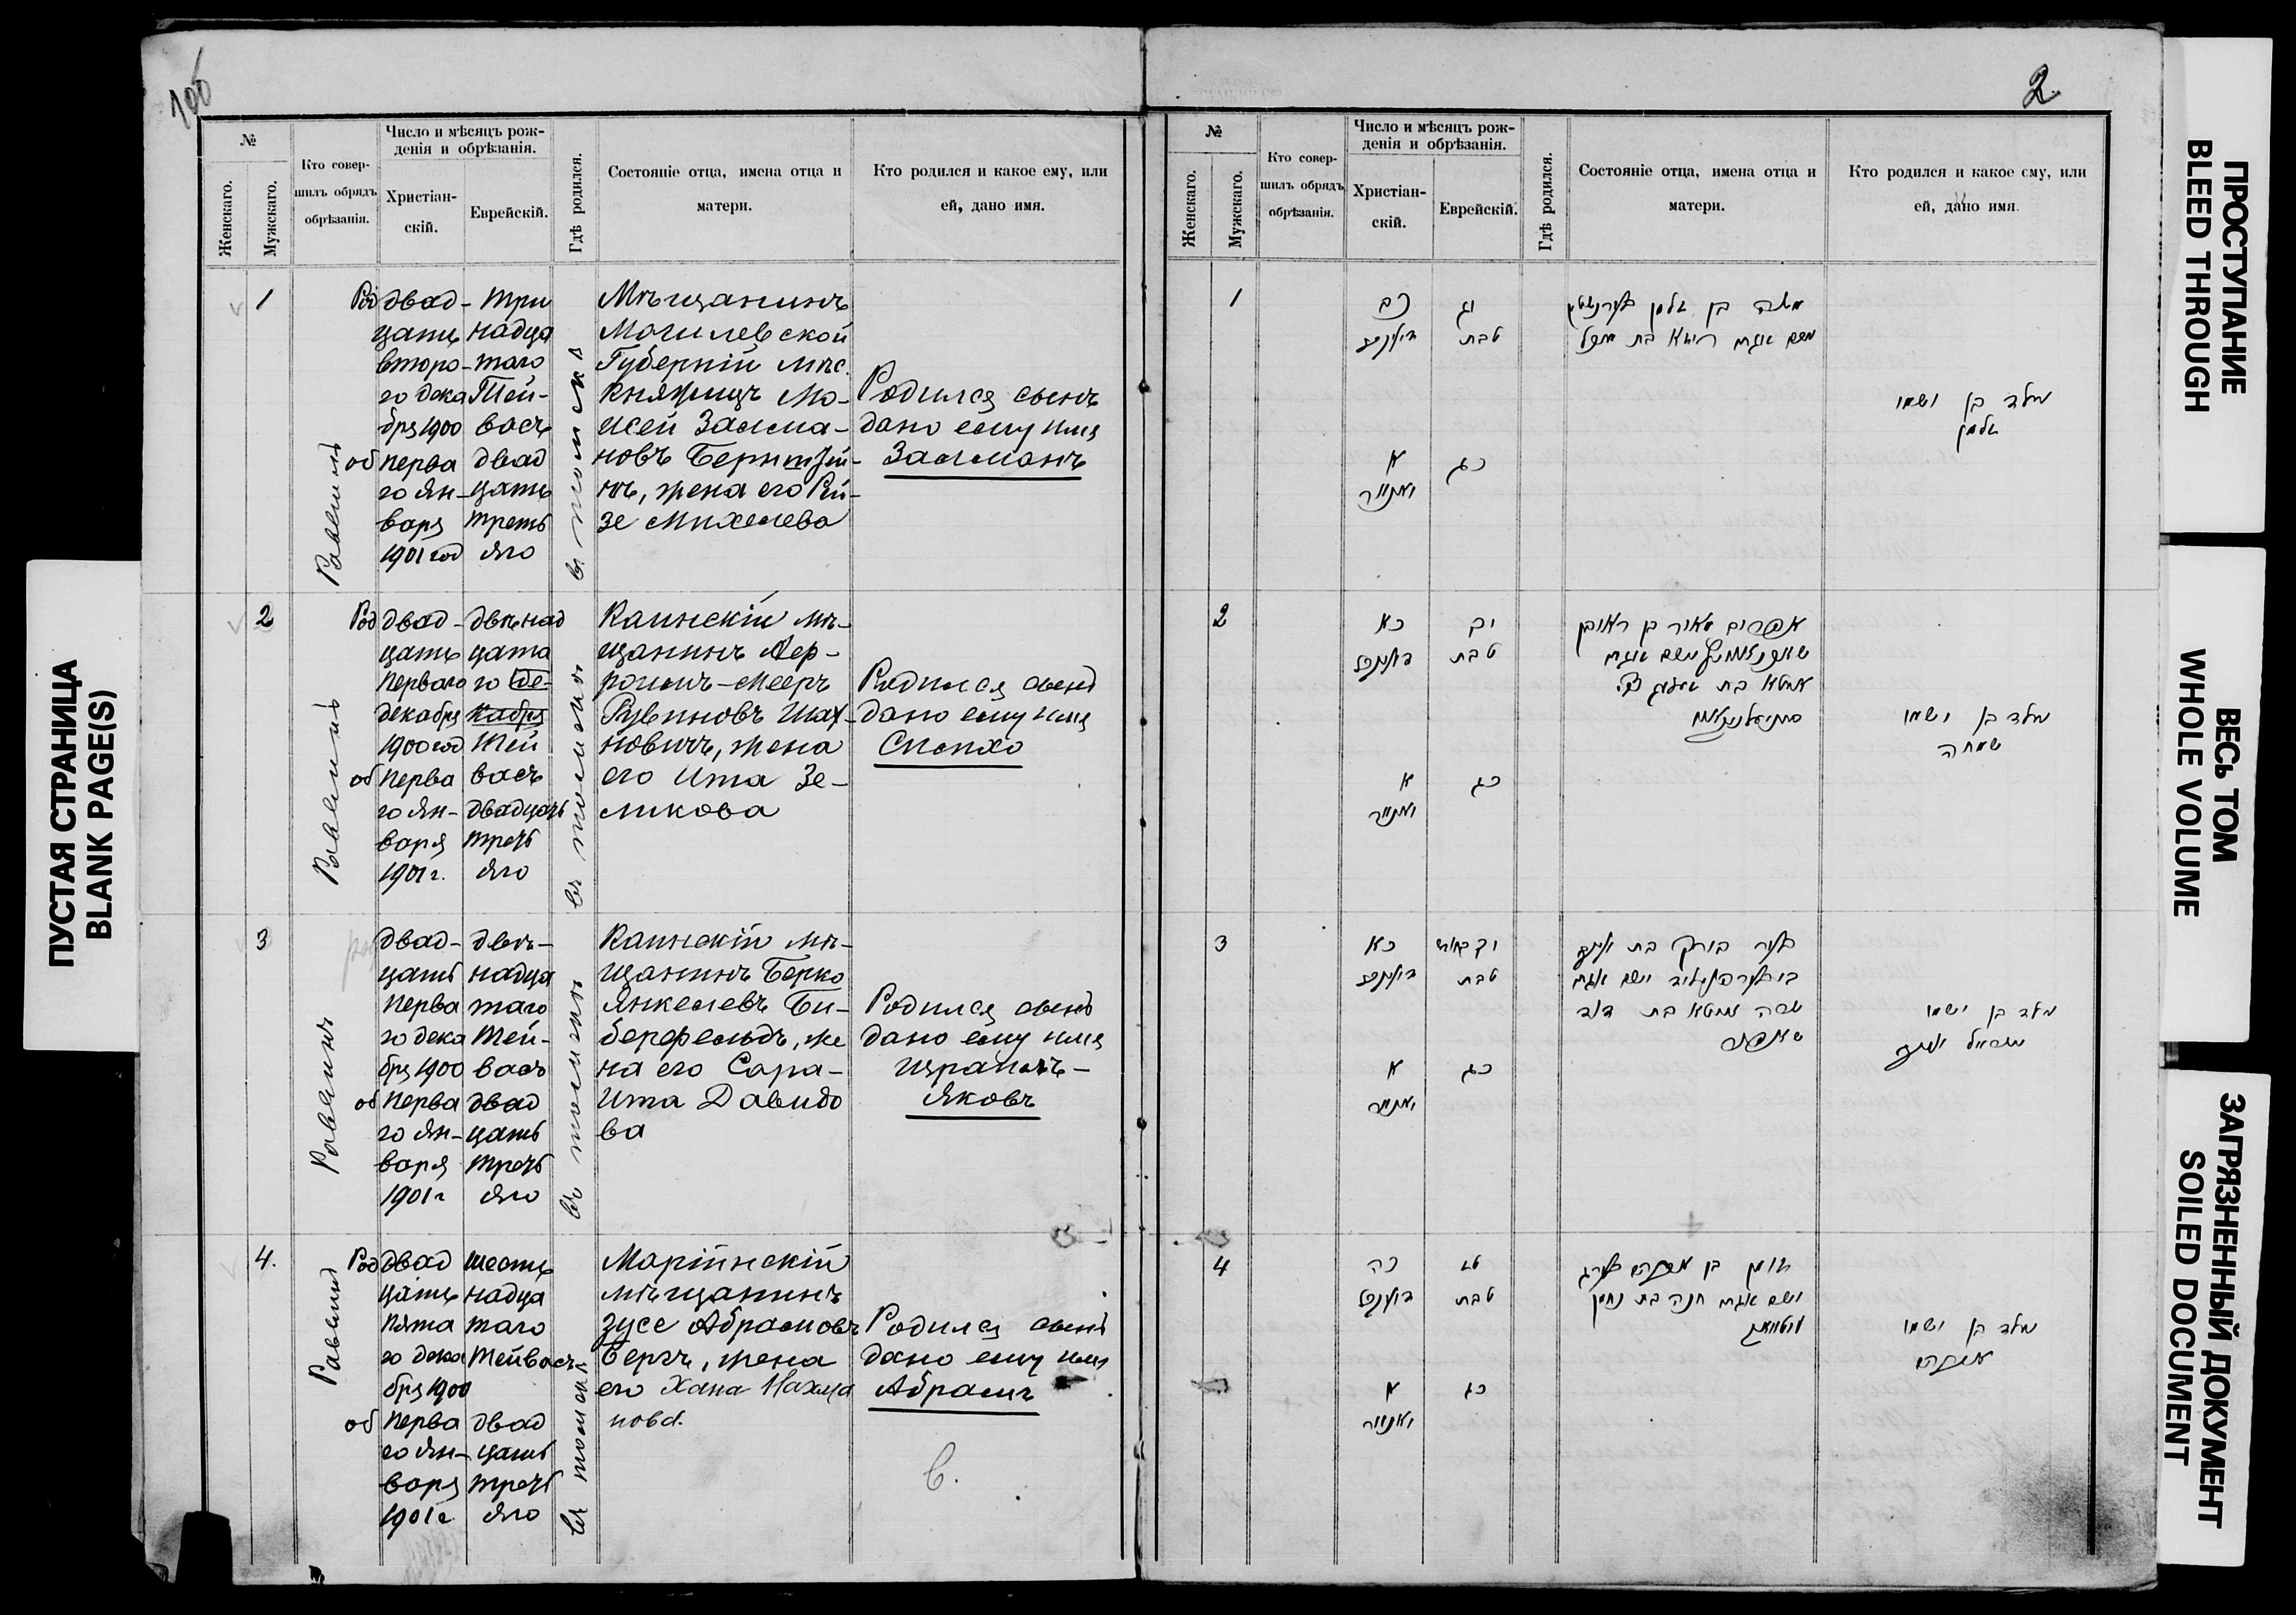 ПУСТАЯ СТРАНИЦА
BLANK PAGE(S)
106
№
Женскаго.
Мужскаго.
Кто совер-
шилъ обрядъ
обрѣзанія.
Число и мѣсяцъ рож-
денія и обрѣзанія.
Христіан-
скій.
Еврейскій.
Гдѣ родился.
Состояніе отца, имена отца и
матери.
Кто родился и какое ему, или
ей, дано имя.
1
Раввинъ
Род двад-
цать
второ-
го дека
бря 1900
об перва
го Ян-
варя
1901 год
три
надца
таго
Тей-
васъ
двад
цать
треть
яго
въ томскѣ
Мѣщанинъ
Могилевской
Губерніи мѣс.
Княжицъ Мо-
исей Залма-
новъ Бернштей-
нъ, жена его Рей-
зе Михелева
Родился сынъ
дано ему имя
Залманъ
2
Раввинъ
Род двад-
цать
перваго
декабря
1900 год
об перва
го Ян-
варя
1901 г.
двѣнад
цата
го де-
кабря
Тей
васъ
двадцать
треть
яго
въ томскѣ
Каинскій мѣ-
щанинъ
Мееръ
Рувиновъ Шах-
новичъ, жена
его Ита Зе-
ликова
Родился сынъ
дано ему имя
Симхо
3
Раввинъ
двад-
цать
перва
го дека
бря 1900
об перва
го Ян-
варя
1901 г
двѣ-
надца
таго
Тей-
васъ
двад
цать
треть
яго
въ томскѣ
Каинскій мѣ-
щанинъ Берко
Янкелевъ Би-
берфельдъ, же
на его Сара-
Ита Давидо
ва
Родился сынъ
дано ему имя
Израиль-
Яковъ
4.
Раввинъ
Род двад
цать
пята
го дека
бря 1900
об перва
го Ян-
варя
1901 г.
шесть
надца
таго
Тейвасъ
двад
цать
треть
яго
въ томскѣ
Маріинскій
мѣщанинъ
Зусе Абрамовъ
Бергъ, жена
его Хана Нахма
нова.
Родился сынъ
дано ему имя
Абрамъ
2
№
Женскаго.
Мужскаго.
Кто совер-
шилъ обрядъ
обрѣзанія.
Число и мѣсяцъ рож-
денія и обрѣзанія.
Христіан-
скій.
Еврейскій.
Гдѣ родился.
Состояніе отца, имена отца и
матери.
Кто родился и какое ему, или
ей, дано имя.
1
כב
יג
טבת
משה בן זלמן
א
כג
יאנואר
נולד בן ושמו
זלמן
2
כא
יב
טבת
מאיר בן ראובן
א
כג
יאנואר
נולד בן ושמו
שמחה
3
כא
טבת
א
כג
יאנואר
נולד בן ושמו
ישראל יעקב
4
כה
טבת
חנה בת נחמן
א
כג
יאנואר
נולד בן ושמו
אברהם
ПРОСТУПАНИЕ
BLEED THROUGH
ВЕСЬ ТОМ
WHOLE VOLUME
ЗАГРЯЗНЕННЫЙ ДОКУМЕНТ
SOILED DOCUMENT